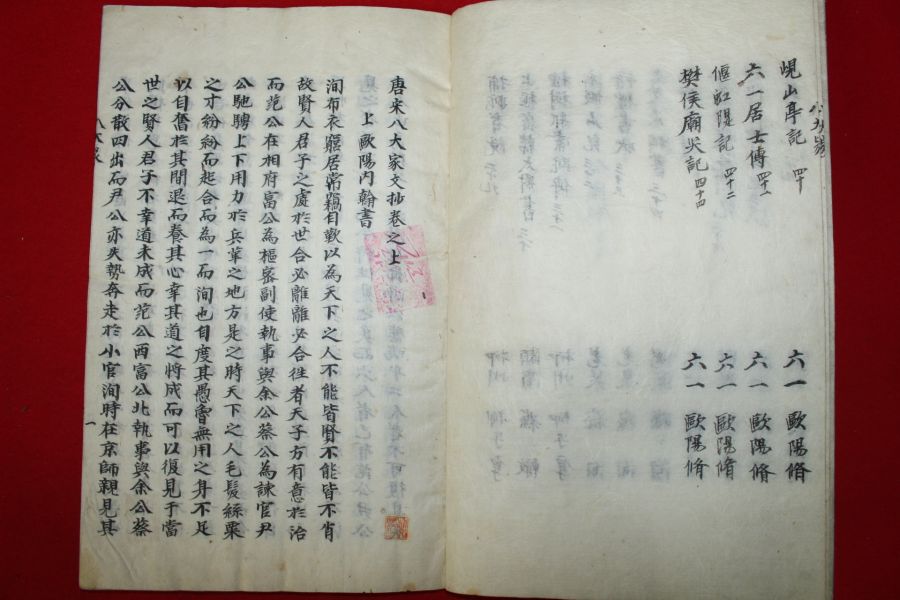 峴山亭記 四十 六一 歐陽脩
六一居士傳 四十一 六一 歐陽脩
偃虹隄記 四十二 六一 歐陽脩
樊侯廟災記 四十四 六一 歐陽脩
唐宋八大家文抄卷之上
上歐陽內翰書
洵布衣窮居常竊自歎以為天下之人不能皆賢不能皆不肖
故賢人君子之處於世合必離離必合往者天子方有意於治
而范公在相府富公為樞密副使執事與余公蔡公為諫官尹
公馳騁上下用力於兵革之地方是之時天下之人毛髮絲粟
之才紛紛而起合而為一而洵也自度其愚魯無用之身不足
以自奮於其間退而養其心幸其道之將成而可以復見于當
世之賢人君子不幸道未成而范公西富公北執事與余公蔡
公分散四出而尹公亦失勢奔走於小官洵時在京師親見其
一